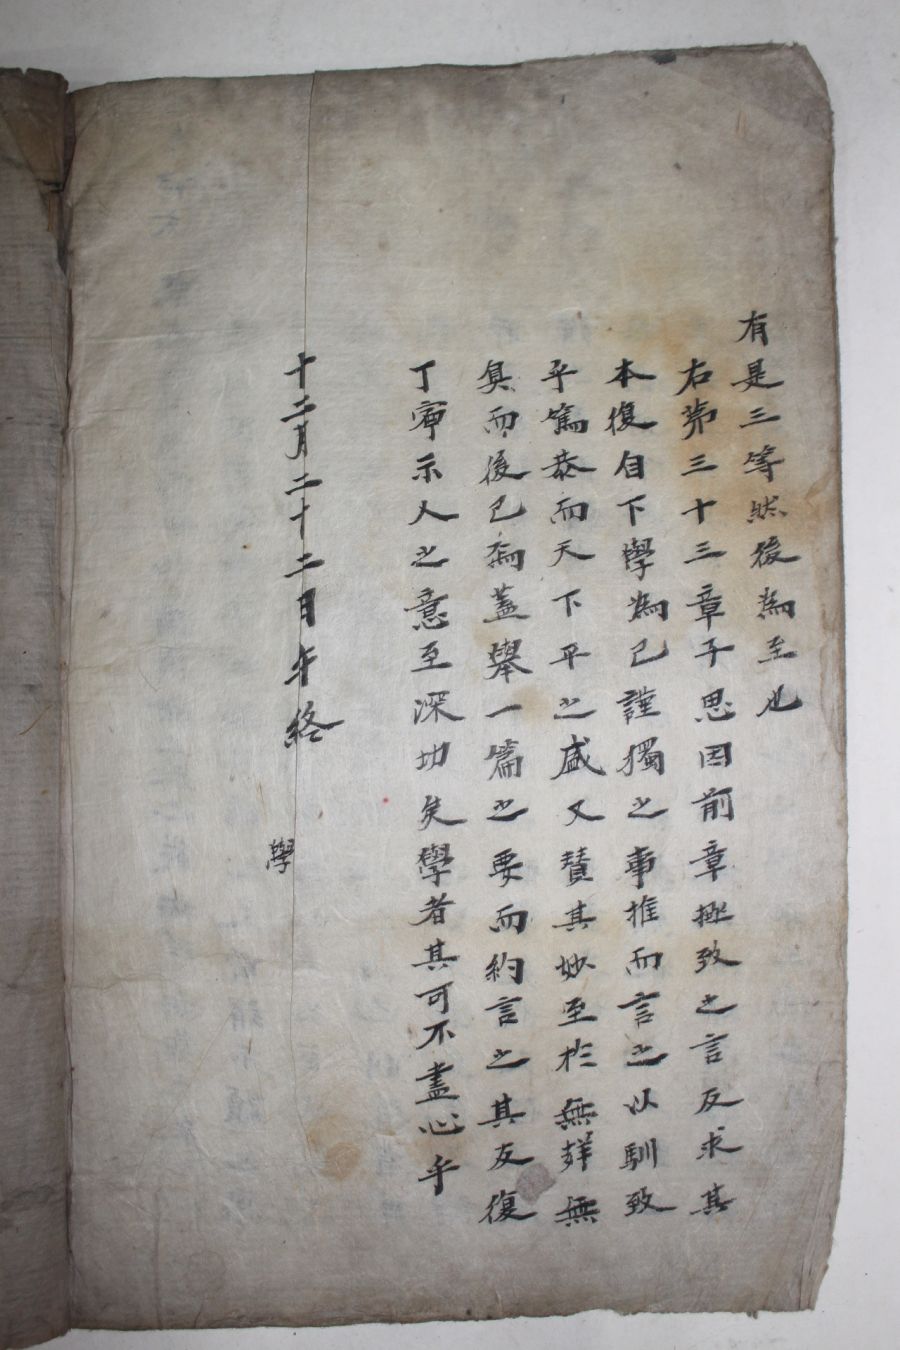 有是三等然後為至也
右第三十三章子思因前章極致之言反求其
本復自下學為己謹獨之事推而言之以馴致
乎篤恭而天下平之盛又贊其妙至於無聲無
臭而後已焉蓋舉一篇之要而約言之其反復
丁寧示人之意至深切矣學者其可不盡心乎
十二月二十二日午終
學